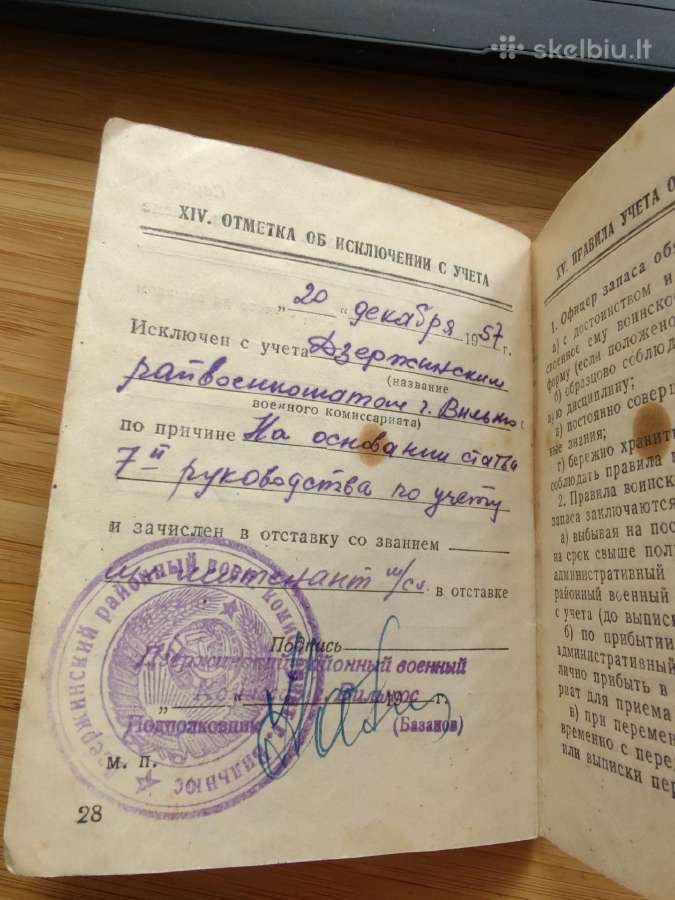 skelbiu.lt
XIV. ОТМЕТКА ОБ ИСКЛЮЧЕНИИ С УЧЕТА
„20“ декабря 1957 г.
Исключен с учета Дзержинским
(название
райвоенкоматом г. Вильно
военного комиссариата)
по причине На основании статьи
7-й руководства по учету
и зачислен в отставку со званием
мл. лейтенант м/сл. в отставке
Подпись
Дзержинский районный военный
Вильнюс
„ “ 19 г.
Подполковник (Базанов)
м. п.
Дзержинский районный воен. г. Вильнюс
28
XV. ПРАВИЛА УЧЕТА О
1. Офицер запаса обя
а) с достоинством и
своенное ему воинско
форму (если положено
б) образцово соблюд
ую дисциплину;
в) постоянно соверш
ные знания;
г) бережно хранить
соблюдать правила
2. Правила воинск
запаса заключаются
а) выбывая на пос
на срок свыше пол
административный
районный военный
с учета (до выписк
б) по прибытии
административный
лично прибыть в
риат для приема
в) при перемен
временно с перед
или выписки пер